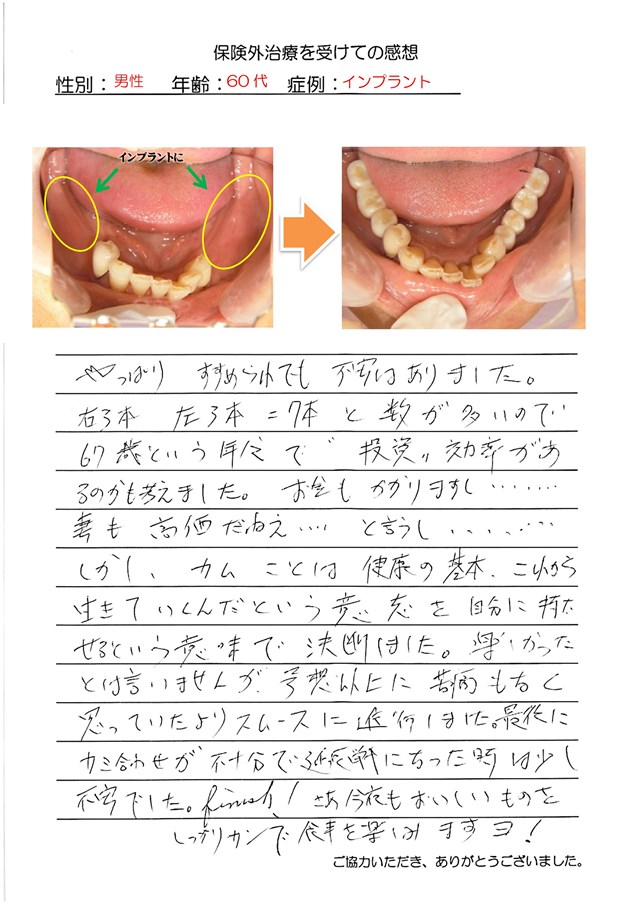 保険外治療を受けての感想
性別：男性 年齢：60代 症例：インプラント
インプラントに
やっぱり すすめられても 不安はありました。
右3本 左3本 = 7本 と 数が多いので
67歳という年令で "投資" 効率があ
るのかも考えました。 お金も かかりますし・・・・・・・
妻も 高価だねえ・・・・ と言うし・・・・・・・
しかし、カム ことは 健康の基本、これから
生きていくんだという意志を 自分に持た
せるという意味で 決断しました。楽しかった
とは言いませんが、予想以上に 苦痛もなく
思っていたよりスムースに進行しました。最後に
カミ合わせが 不十分で延長戦になった時は少し
不安でした。finish! さあ今夜もおいしいものを
しっかりカンで 食事を楽しみますヨ!
ご協力いただき、ありがとうございました。